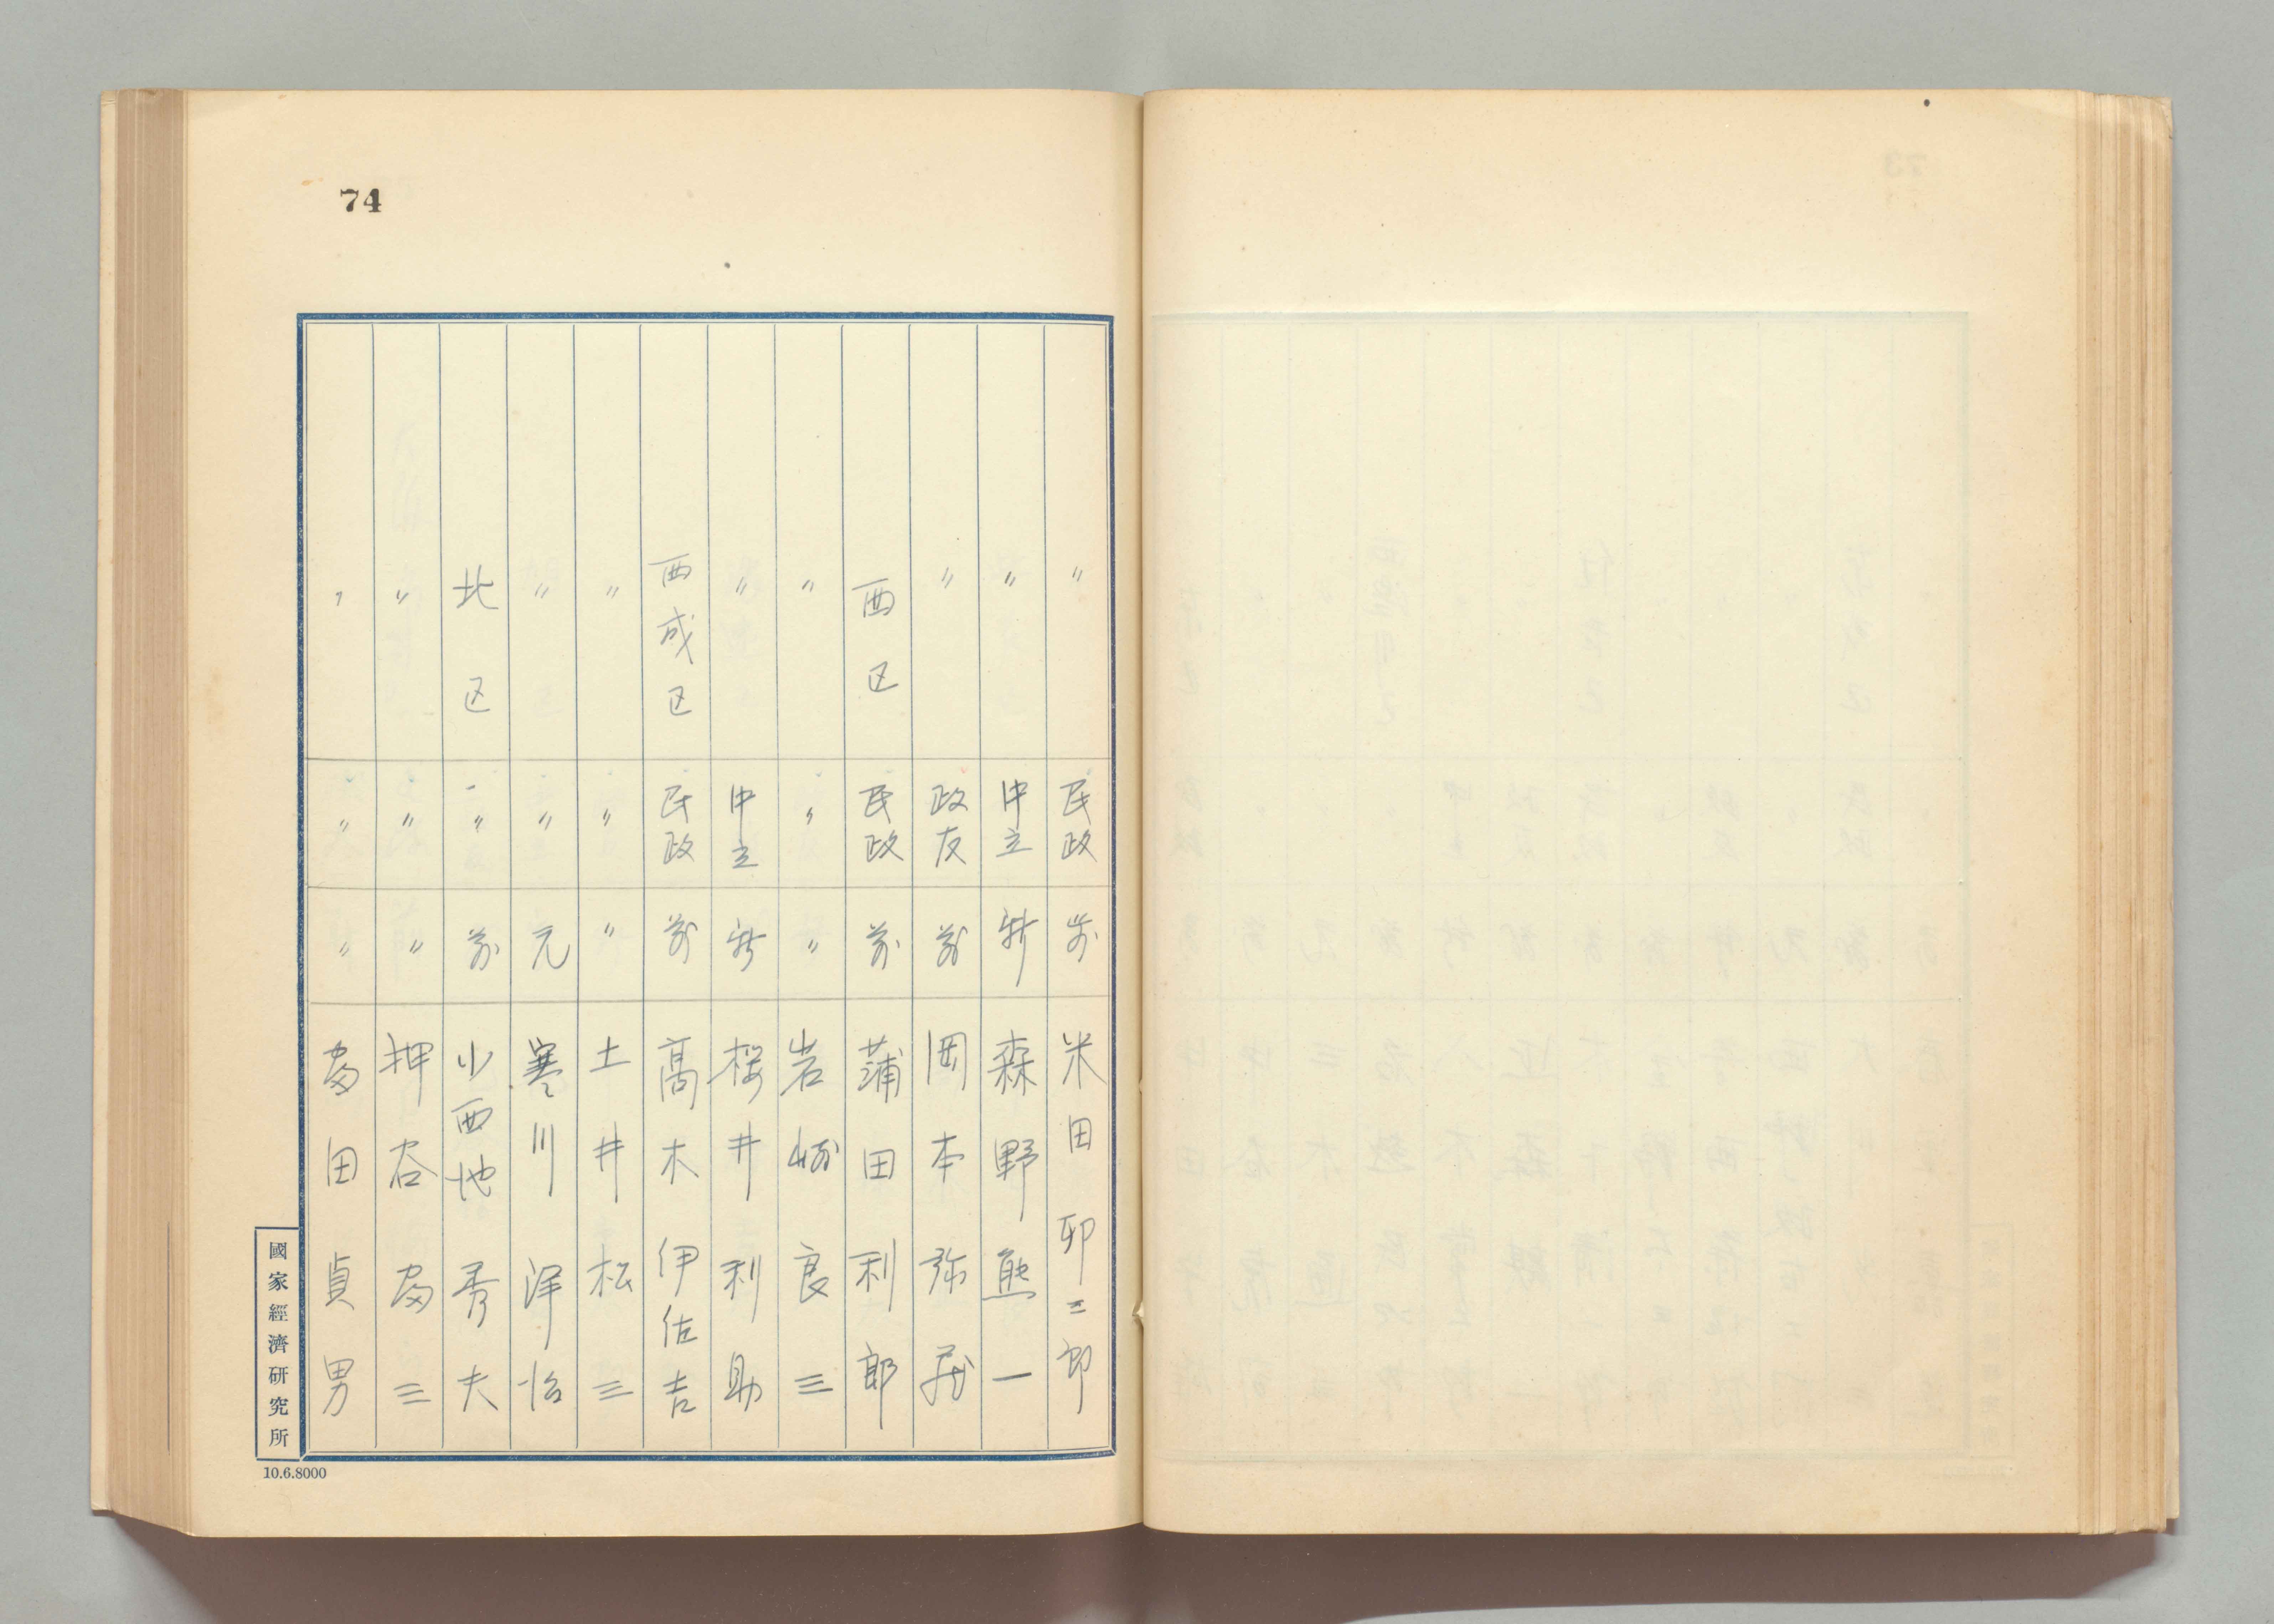 74
〃 民政 前 米田卯三郎
〃 中立 新 森野熊一
〃 政友 前 岡本弥蔵
西区 民政 前 蒲田利郎
〃 〃 〃 岩崎良三
〃 中立 新 桜井利助
西成区 民政 前 高木伊佐吉
〃 〃 〃 土井松三
〃 〃 元 寒川洋治
北区 〃 前 小西地秀夫
〃 〃 〃 押谷富三
〃 〃 〃 富田貞男
國家經濟研究所
10.6.8000